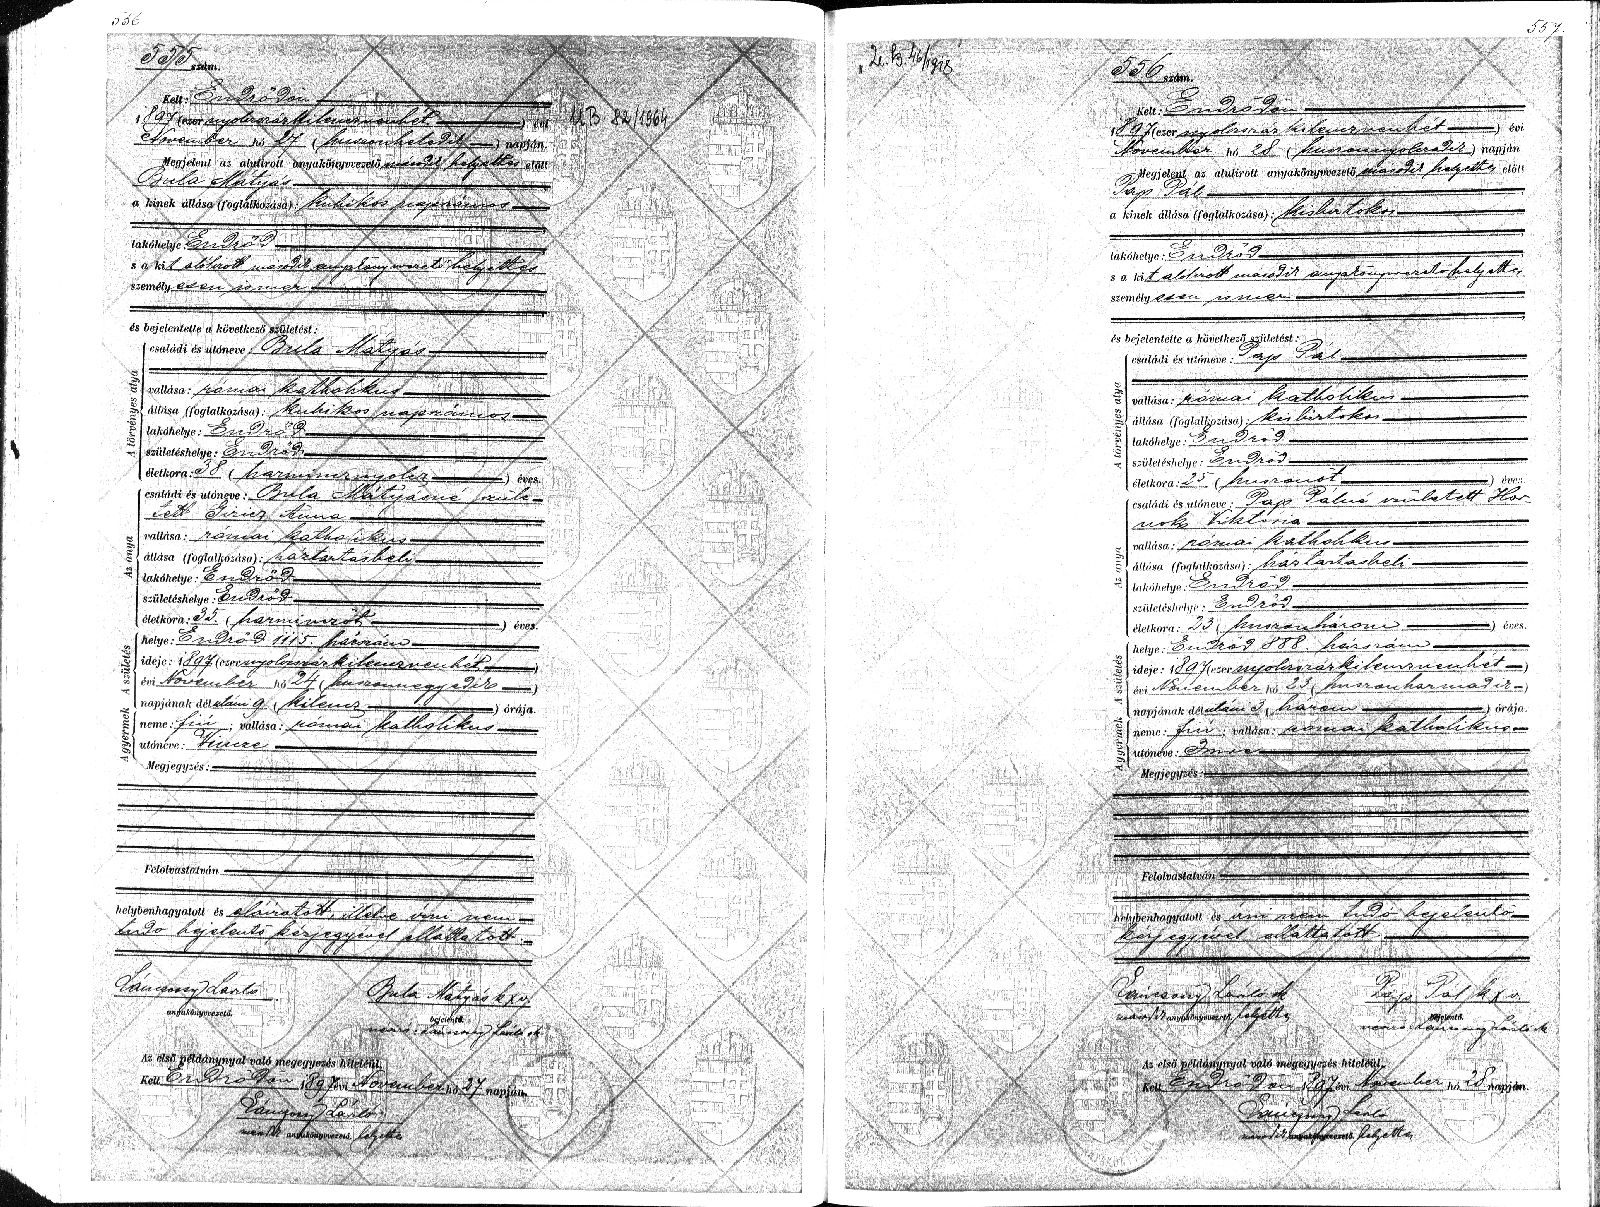 556
555 szám.
Kelt: Endrődön
1897 (ezer nyolczszázkilenczvenhét) évi
November hó 27 (huszonhetedik) napján.
Megjelent az alulirott anyakönyvvezető második helyettes előtt
Bula Mátyás
a kinek állása (foglalkozása): kubikos napszámos
lakóhelye: Endrőd
s a kit alólirott második anyakönyvvezető helyettes
személyesen ismer
és bejelentette a következő születést:
A törvényes atya
családi és utóneve: Bula Mátyás
vallása: római katholikus
állása (foglalkozása): kubikos napszámos
lakóhelye: Endrőd
születéshelye: Endrőd
életkora: 38 (harmincznyolcz) éves.
Az anya
családi és utóneve: Bula Mátyásné szüle-
tett Giricz Anna
vallása: római katholikus
állása (foglalkozása): háztartásbeli
lakóhelye: Endrőd
születéshelye: Endrőd
életkora: 35. (harminczöt) éves.
A születés
helye: Endrőd 1115. házszám
ideje: 1897 (ezernyolczszázkilenczvenhét)
évi November hó 24 (huszonnegyedik)
napjának délutáni 9 (kilencz) órája.
A gyermek
neme: fiú; vallása: római katholikus
utóneve: Vincze
Megjegyzés:
Felolvastatván
helybenhagyatott és aláiratott, illetve irni nem
tudó bejelentő kézjegyével elláttatott.
Lánczosy László
anyakönyvvezető.
Bula Mátyás kxv.
bejelentő.
Az első példánynyal való megegyezés hiteléül.
Kelt Endrődön 1897 évi November hó 27 napján.
László
második anyakönyvvezető. helyettes
UB 82/1964
557
46/1918
556 szám.
Kelt: Endrődön
1897 (ezer nyolczszázkilenczvenhét) évi
November hó 28. (huszonnyolczadik) napján
Megjelent az alulirott anyakönyvvezető második helyettes előtt
Pap Pál
a kinek állása (foglalkozása): kisbirtokos
lakóhelye: Endrőd
s a kit alólirott második anyakönyvvezető helyettes
személyesen ismer
és bejelentette a következő születést:
A törvényes atya
családi és utóneve: Pap Pál
vallása: római katholikus
állása (foglalkozása): kisbirtokos
lakóhelye: Endrőd
születéshelye: Endrőd
életkora: 25. (huszonöt) éves.
Az anya
családi és utóneve: Pap Pálné született Hor-
nok Viktória
vallása: római katholikus
állása (foglalkozása): háztartásbeli
lakóhelye: Endrőd
születéshelye: Endrőd
életkora: 23 (huszonhárom) éves.
A születés
helye: Endrőd 888. házszám
ideje: 1897 (ezer nyolczszázkilenczvenhét)
évi November hó 23 (huszonharmadik)
napjának délutáni 3 (három) órája.
A gyermek
neme: fiú; vallása: római katholikus
utóneve: Imre
Megjegyzés:
Felolvastatván
helybenhagyatott és irni nem tudó bejelentő
kézjegyével elláttatott.
László
második anyakönyvvezető. helyettes
Pap Pál kxv.
bejelentő.
Az első példánynyal való megegyezés hiteléül.
Kelt Endrődön 1897 évi November hó 28 napján.
László
második anyakönyvvezető. helyettes